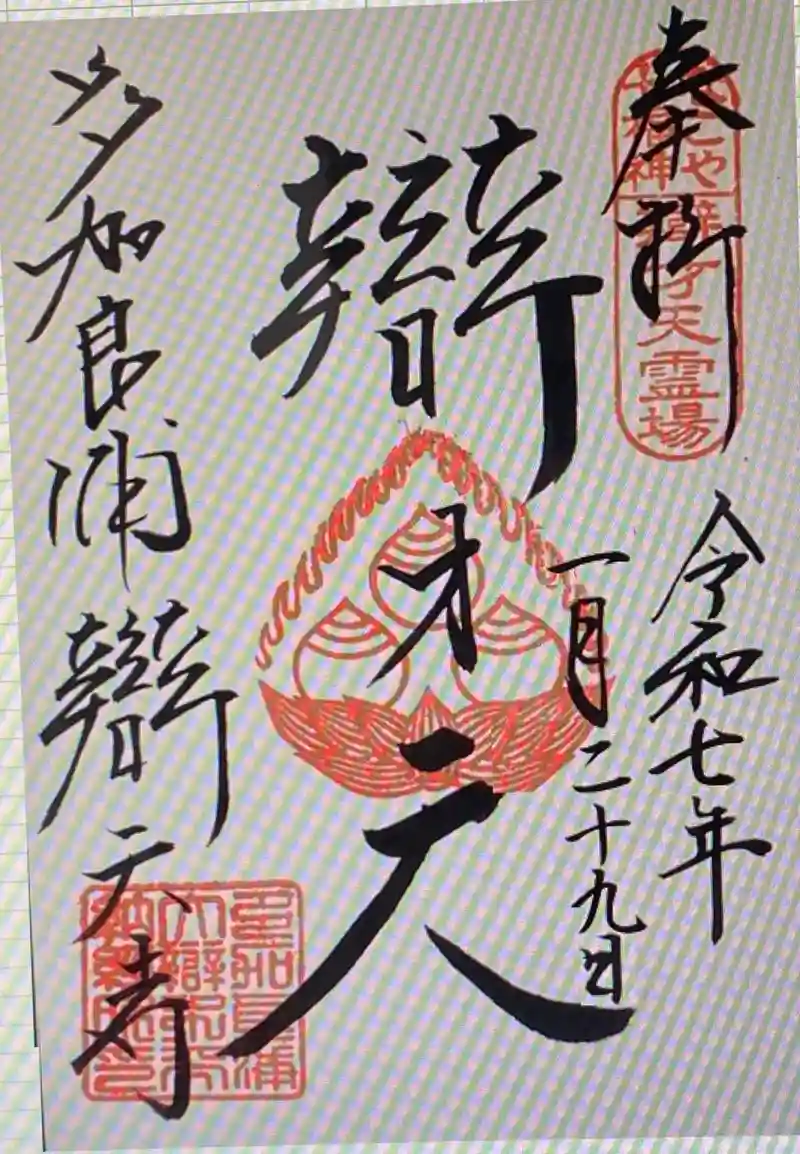 奉拝
辨才天霊場
令和七年
一月二十九日
辯才天
多加良浦辯天寺